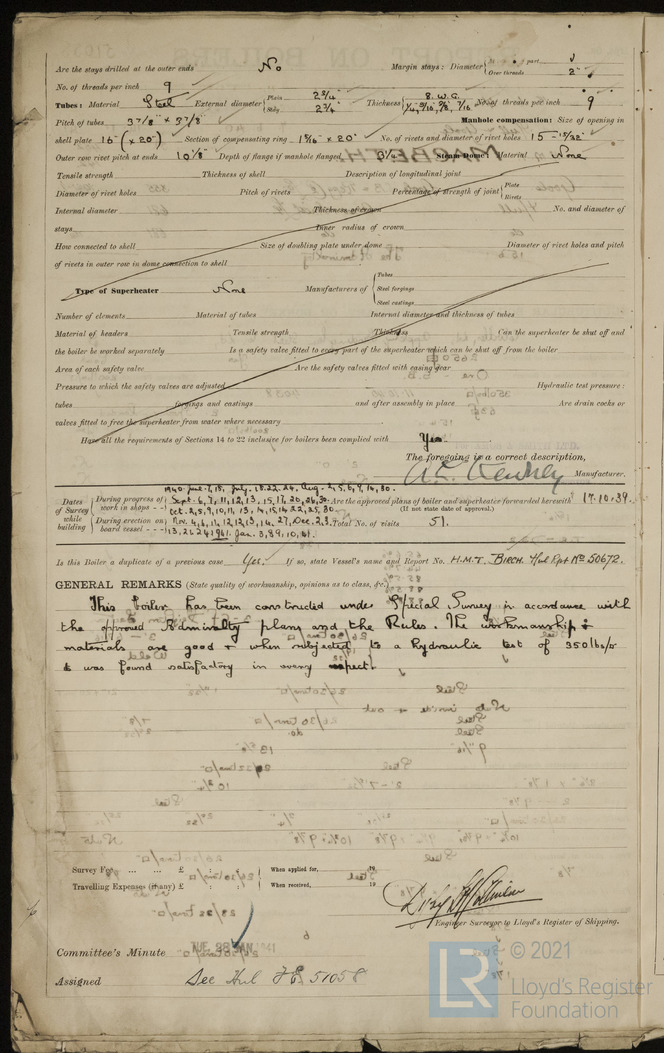 Are the stays drilled at the outer ends No Margin stays: Diameter { At part
Over threads 2"
No. of threads per inch 9
Tubes: Material Steel External diameter { Plain 2 3/4" Thickness { 8. W.G. No. of threads per inch 9
Stay 2 3/4"
Pitch of tubes 3 7/8" x 3 7/8" Manhole compensation: Size of opening in
shell plate 16" (x 20") Section of compensating ring x 20" No. of rivets and diameter of rivet holes 15 - 15/32"
Outer row rivet pitch at ends 10 1/8" Depth of flange if manhole flanged 3 1/4" Steam Dome: Material None
Tensile strength Thickness of shell Description of longitudinal joint
Diameter of rivet holes Pitch of rivets Percentage of strength of joint { Plate
Rivets
Internal diameter Thickness of crown No. and diameter of
stays Inner radius of crown
How connected to shell Size of doubling plate under dome Diameter of rivet holes and pitch
of rivets in outer row in dome connection to shell
Type of Superheater None Manufacturers of { Tubes
Steel forgings
Steel castings
Number of elements Material of tubes Internal diameter and thickness of tubes
Material of headers Tensile strength Thickness Can the superheater be shut off and
the boiler be worked separately Is a safety valve fitted to every part of the superheater which can be shut off from the boiler
Area of each safety valve Are the safety valves fitted with easing gear
Pressure to which the safety valves are adjusted Hydraulic test pressure:
tubes forgings and castings and after assembly in place Are drain cocks or
valves fitted to free the superheater from water where necessary
Have all the requirements of Sections 14 to 22 inclusive for boilers been complied with Yes
The foregoing is a correct description,
Manufacturer.
Dates of Survey while building { During progress of work in shops - - 1940 June 7, 15, July. 18. 22. 24. Aug. 2, 5, 6, 7, 14, 30.
Sept. 6, 7, 11, 12, 13, 15, 17, 20, 26, 30. Are the approved plans of boiler and superheater forwarded herewith 17.10.39.
Oct. 2, 5, 9, 10, 11, 13, 14, 15, 14, 22, 25, 30. (If not state date of approval.)
During erection on board vessel - - - Nov. 4, 6, 14, 12, 12, 13, 14. 27, Dec. 2, 3. Total No. of visits 51.
13, 23, 24, 1941. Jan. 3, 8, 9, 10, 14.
Is this Boiler a duplicate of a previous case Yes. If so, state Vessel's name and Report No. H.M.T. BIRCH. Hul Rpt No 50672.
GENERAL REMARKS (State quality of workmanship, opinions as to class, &c.)
This boiler has been constructed under Special Survey in accordance with
the approved Admiralty plans and the Rules. The workmanship &
materials are good & when subjected to a hydraulic test of 350 lbs/□"
it was found satisfactory in every respect.
Survey Fee ... ... £ : : { When applied for, 19
Travelling Expenses (if any) £ : : When received, 19
Engineer Surveyor to Lloyd's Register of Shipping.
Committee's Minute TUE. 28 JAN 1941
Assigned See Hul F.E. 51058
© 2021
Lloyd's Register
Foundation
LR